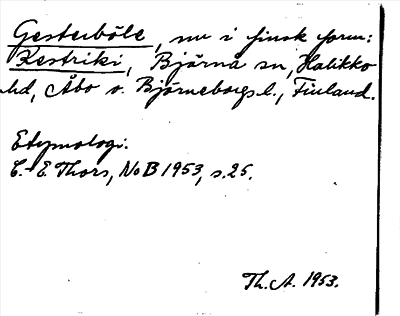 Gesterböle, nu i finsk form:
Kestriki, Björnå sn, Halikko
hd, Åbo o. Björneborgs l., Finland.
Etymologi:
C.-E. Thors, NoB 1953, s. 25.
Th. A. 1953.